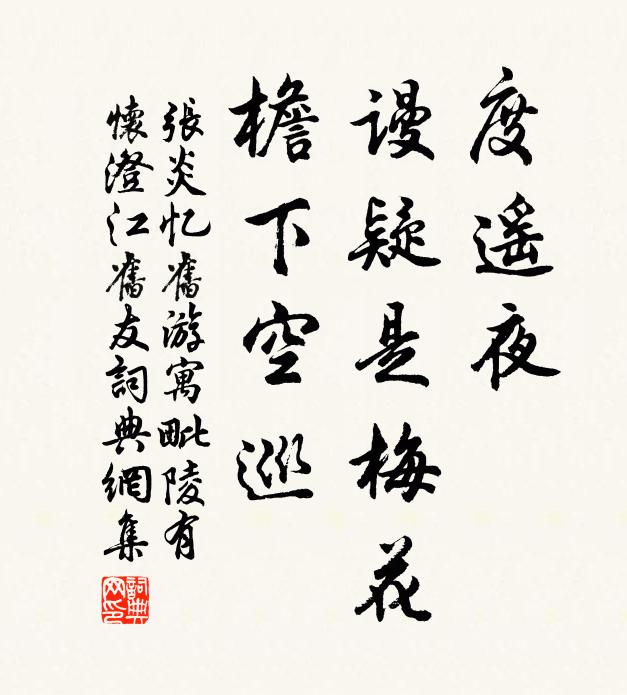 度遥夜
谩疑是梅花
檐下空巡
張炎忆舊游寓毗陵有
懷澄江舊友詞典網集
詞典
网印